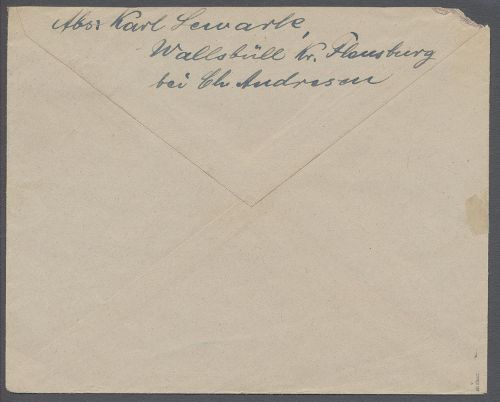 Abs: Karl Sewarte,
Wallsbüll Kr. Flensburg
bei Chr Andresen